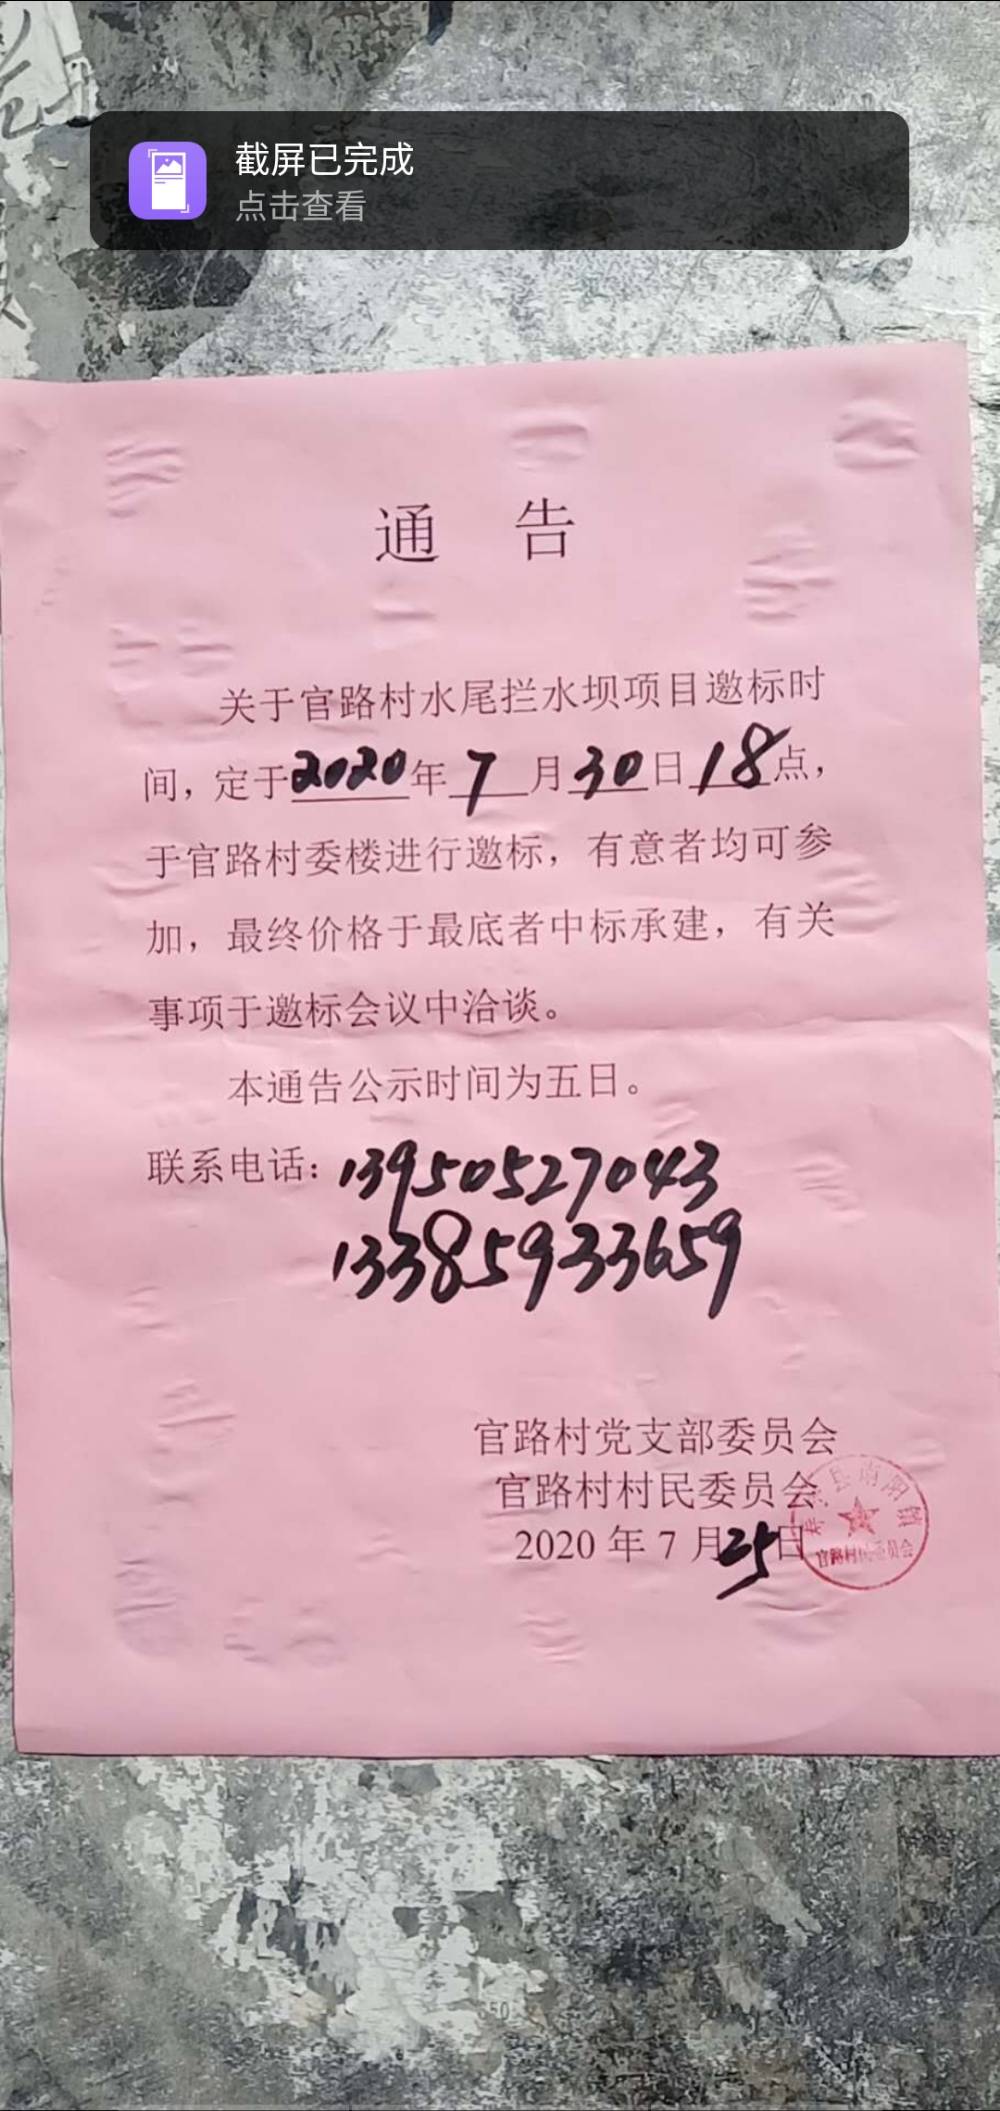 截屏已完成
点击查看
通 告
关于官路村水尾拦水坝项目邀标时
间，定于2020年7月30日18点，
于官路村委楼进行邀标，有意者均可参
加，最终价格于最底者中标承建，有关
事项于邀标会议中洽谈。
本通告公示时间为五日。
联系电话：13950527043
13385933659
官路村党支部委员会
官路村村民委员会
2020年7月25日
县南阳镇
官路村民委员会